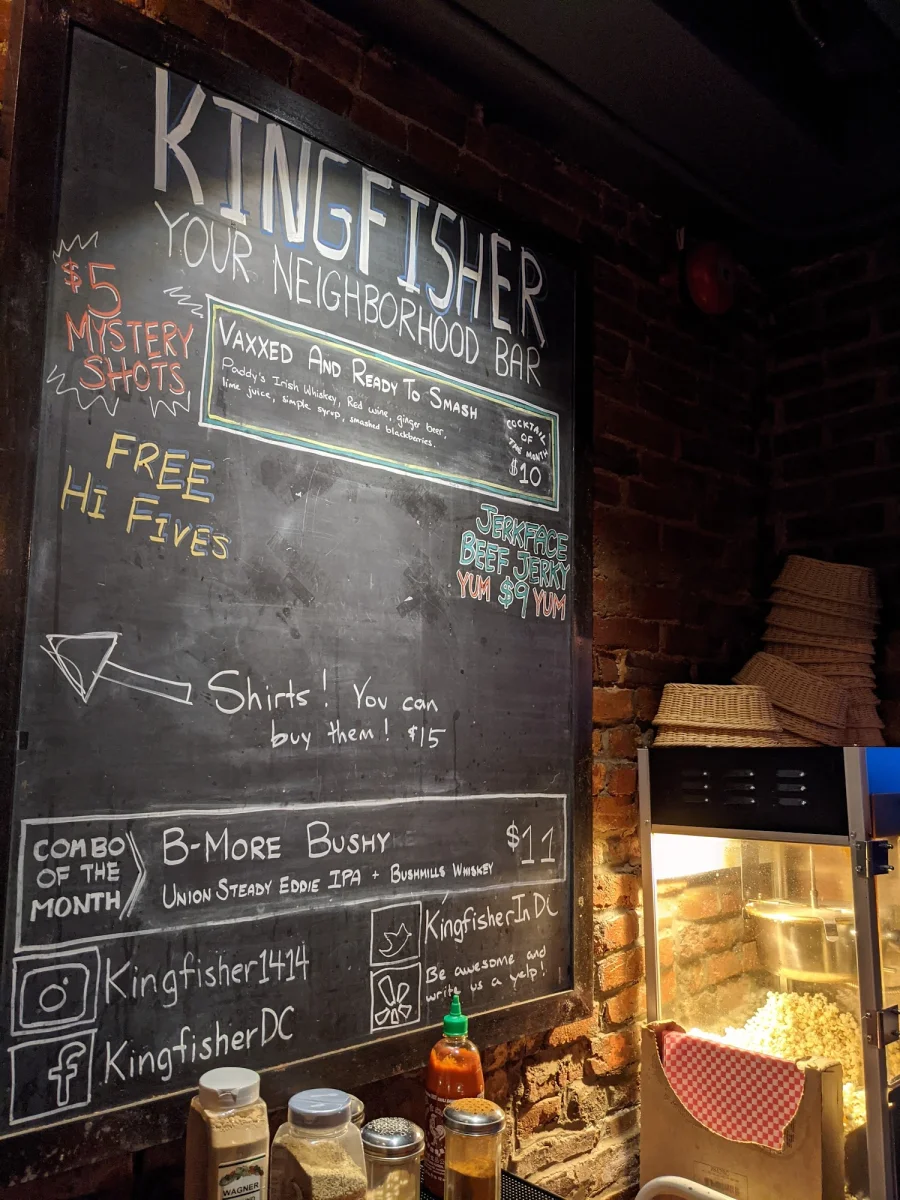 KINGFISHER
YOUR NEIGHBORHOOD BAR
$5
MYSTERY
SHOTS
VAXXED AND READY TO SMASH
Paddy's Irish Whiskey, Red wine, ginger beer,
lime juice, simple syrup, smashed blackberries.
COCKTAIL
OF
THE MONTH
$10
FREE
HI FIVES
JERKFACE
BEEF JERKY
YUM $9 YUM
Shirts! You can
buy them! $15
COMBO
OF THE
MONTH
B-MORE BUSHY
$11
UNION STEADY EDDIE IPA + BUSHMILLS WHISKEY
Kingfisher1414
KingfisherDC
KingfisherInDC
Be awesome and
write us a yelp!
WAGNER